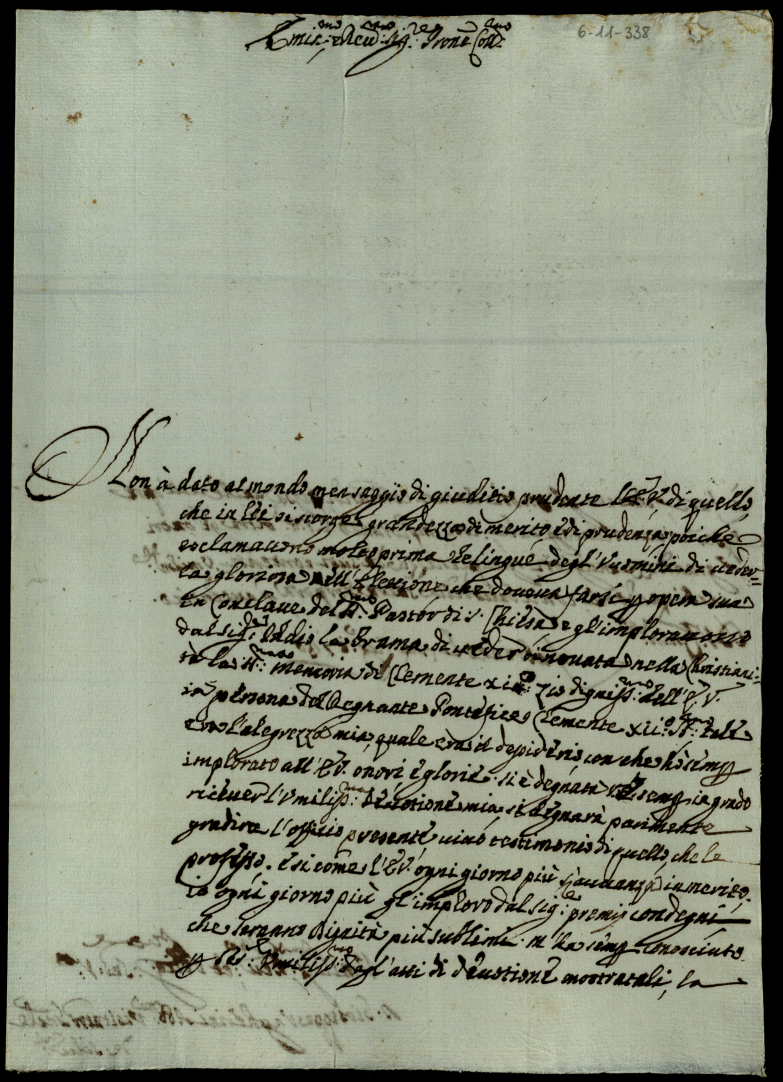 Emin:mo e Reu:mo Sig:re Prone Coll:mo
6-11-338
Non à dato al mondo mensaggio di giuditio prudente l'E.V. di quello,
che in lei si scorge grandezza di merito e di prudenza, poiche
esclamauono molto prima le lingue degl'Vuomini di ueder-
la gloriosa nell'Elezzione che doueua farsi p opera sua
in Conclaue del Pastor di S. Chiesa e gl'implorauono
dal sig:re Iddio la brama di ueder rinouata nella Christiani-
tà la memoria di Clemente Zio digniss:mo dell'E.V.
in persona del Regnante Pontefice Clemente xii:o
l'alegrezza mia, quale era il desiderio con che hò semp
implorato all'E.V. onori e glorie: si è degnata semp in grado
riceuer l'Vmiliss:ma deuotione mia, si degnarà parimente
gradire l'officio presente uiuo testimonio di quello, che le
professo. E si come l'E.V. ogni giorno più s'auuanza in merito,
io ogni giorno più gl'imploro dal sig:re premij condegni
che saranno dignità più sublimi. M'ha semp conosciuto
p Ser:e Vmiliss:mo dagl'atti di deuotione mostratali, la